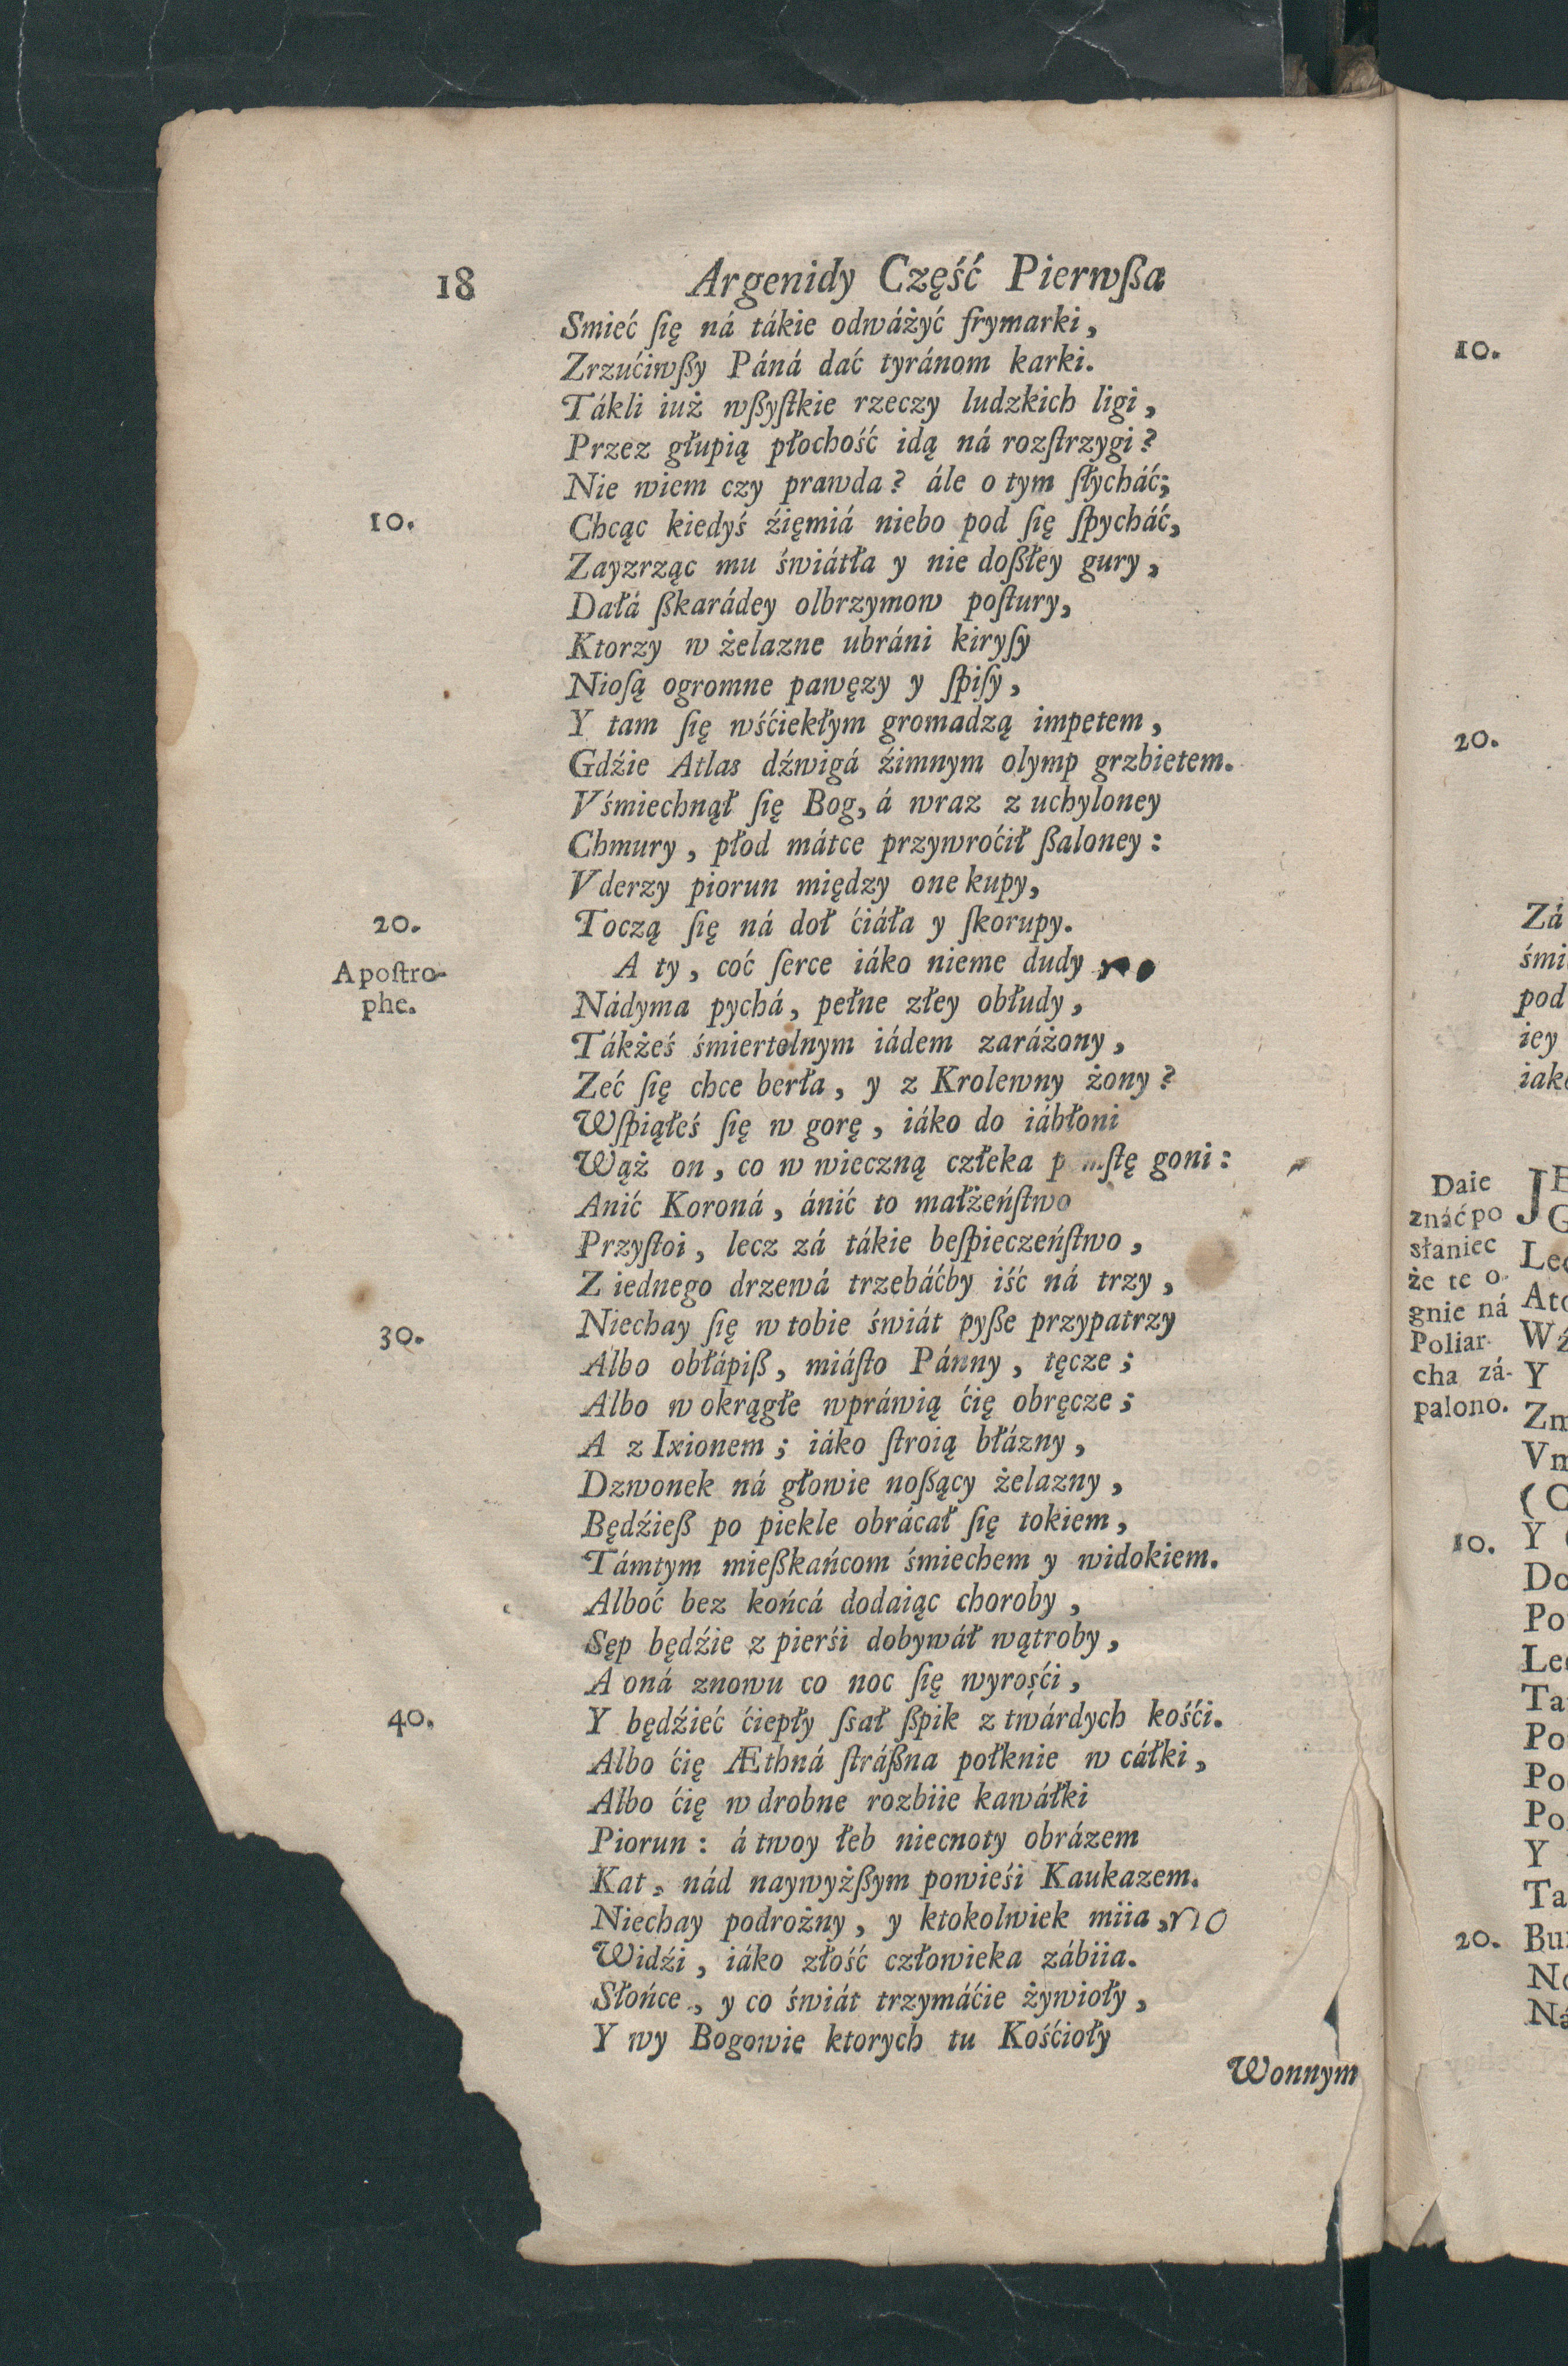 18 Argenidy Część Pierwßa
Smieć ſię ná tákie odwáżyć frymarki,
Zrzućiwßy Páná dać tyránom karki.
Tákli iuż wßyſtkie rzeczy ludzkich ligi,
Przez głupią płochość idą ná rozſtrzygi?
Nie wiem czy prawda? ále o tym ſłycháć;
10. Chcąc kiedyś źięmiá niebo pod ſię ſpycháć,
Zayzrząc mu świátła y nie doßłey gury,
Dałá ßkarádey olbrzymow poſtury,
Ktorzy w żelazne ubráni kiryſy
Nioſą ogromne pawęzy y ſpiſy,
Y tam ſię wśćiekłym gromadzą impetem,
Gdźie Atlas dźwigá źimnym olymp grzbietem.
Vśmiechnął ſię Bog, á wraz z uchyloney
Chmury, płod mátce przywroćił ßaloney:
Vderzy piorun między one kupy,
20. Toczą ſię ná doł ćiáła y ſkorupy.
Apoſtro-
phe.
A ty, coć ſerce iáko nieme dudy no
Nádyma pychá, pełne złey obłudy,
Tákżeś śmiertelnym iádem zaráżony,
Zeć ſię chce berła, y z Krolewny żony?
Wſpiąłeś ſię w gorę, iáko do iábłoni
Wąż on, co w wieczną człeka goni:
Anić Koroná, ánić to małżeńſtwo
Przyſtoi, lecz zá tákie beſpieczeńſtwo,
Z iednego drzewá trzebáćby iść ná trzy,
30. Niechay ſię w tobie świát pyße przypatrzy
Albo obłápiß, miáſto Pánny, tęcze;
Albo w okrągłe wpráwią ćię obręcze;
A z Ixionem; iáko ſtroią błázny,
Dzwonek ná głowie noßący żelazny,
Będźieß po piekle obrácał ſię tokiem,
Támtym mießkańcom śmiechem y widokiem.
Alboć bez końcá dodaiąc choroby,
Sęp będźie z pierśi dobywáł wątroby,
A oná znowu co noc ſię wyrośći,
40. Y będźieć ćiepły ſsał ßpik z twárdych kośći.
Albo ćię Æthná ſtráßna połknie w cáłki,
Albo ćię w drobne rozbiie kawáłki
Piorun: á twoy łeb niecnoty obrázem
Kat, nád naywyżßym powieśi Kaukazem.
Niechay podrożny, y ktokolwiek miia, no
Widźi, iáko złość człowieka zábiia.
Słońce, y co świát trzymáćie żywioły,
Y wy Bogowie ktorych tu Kośćioły
Wonnym
10.
20.
Zá
śmi
pod
iey
iak
Daie
znáć po
słaniec
że te o
gnie ná
Poliar
cha zá-
palono.
JE
G
Lec
Ato
Wź
Y
Zm
Vm
(C
10. Y
Do
Po
Le
Ta
Po
Po
Po
Y
Ta
20. Bu
No
Ná